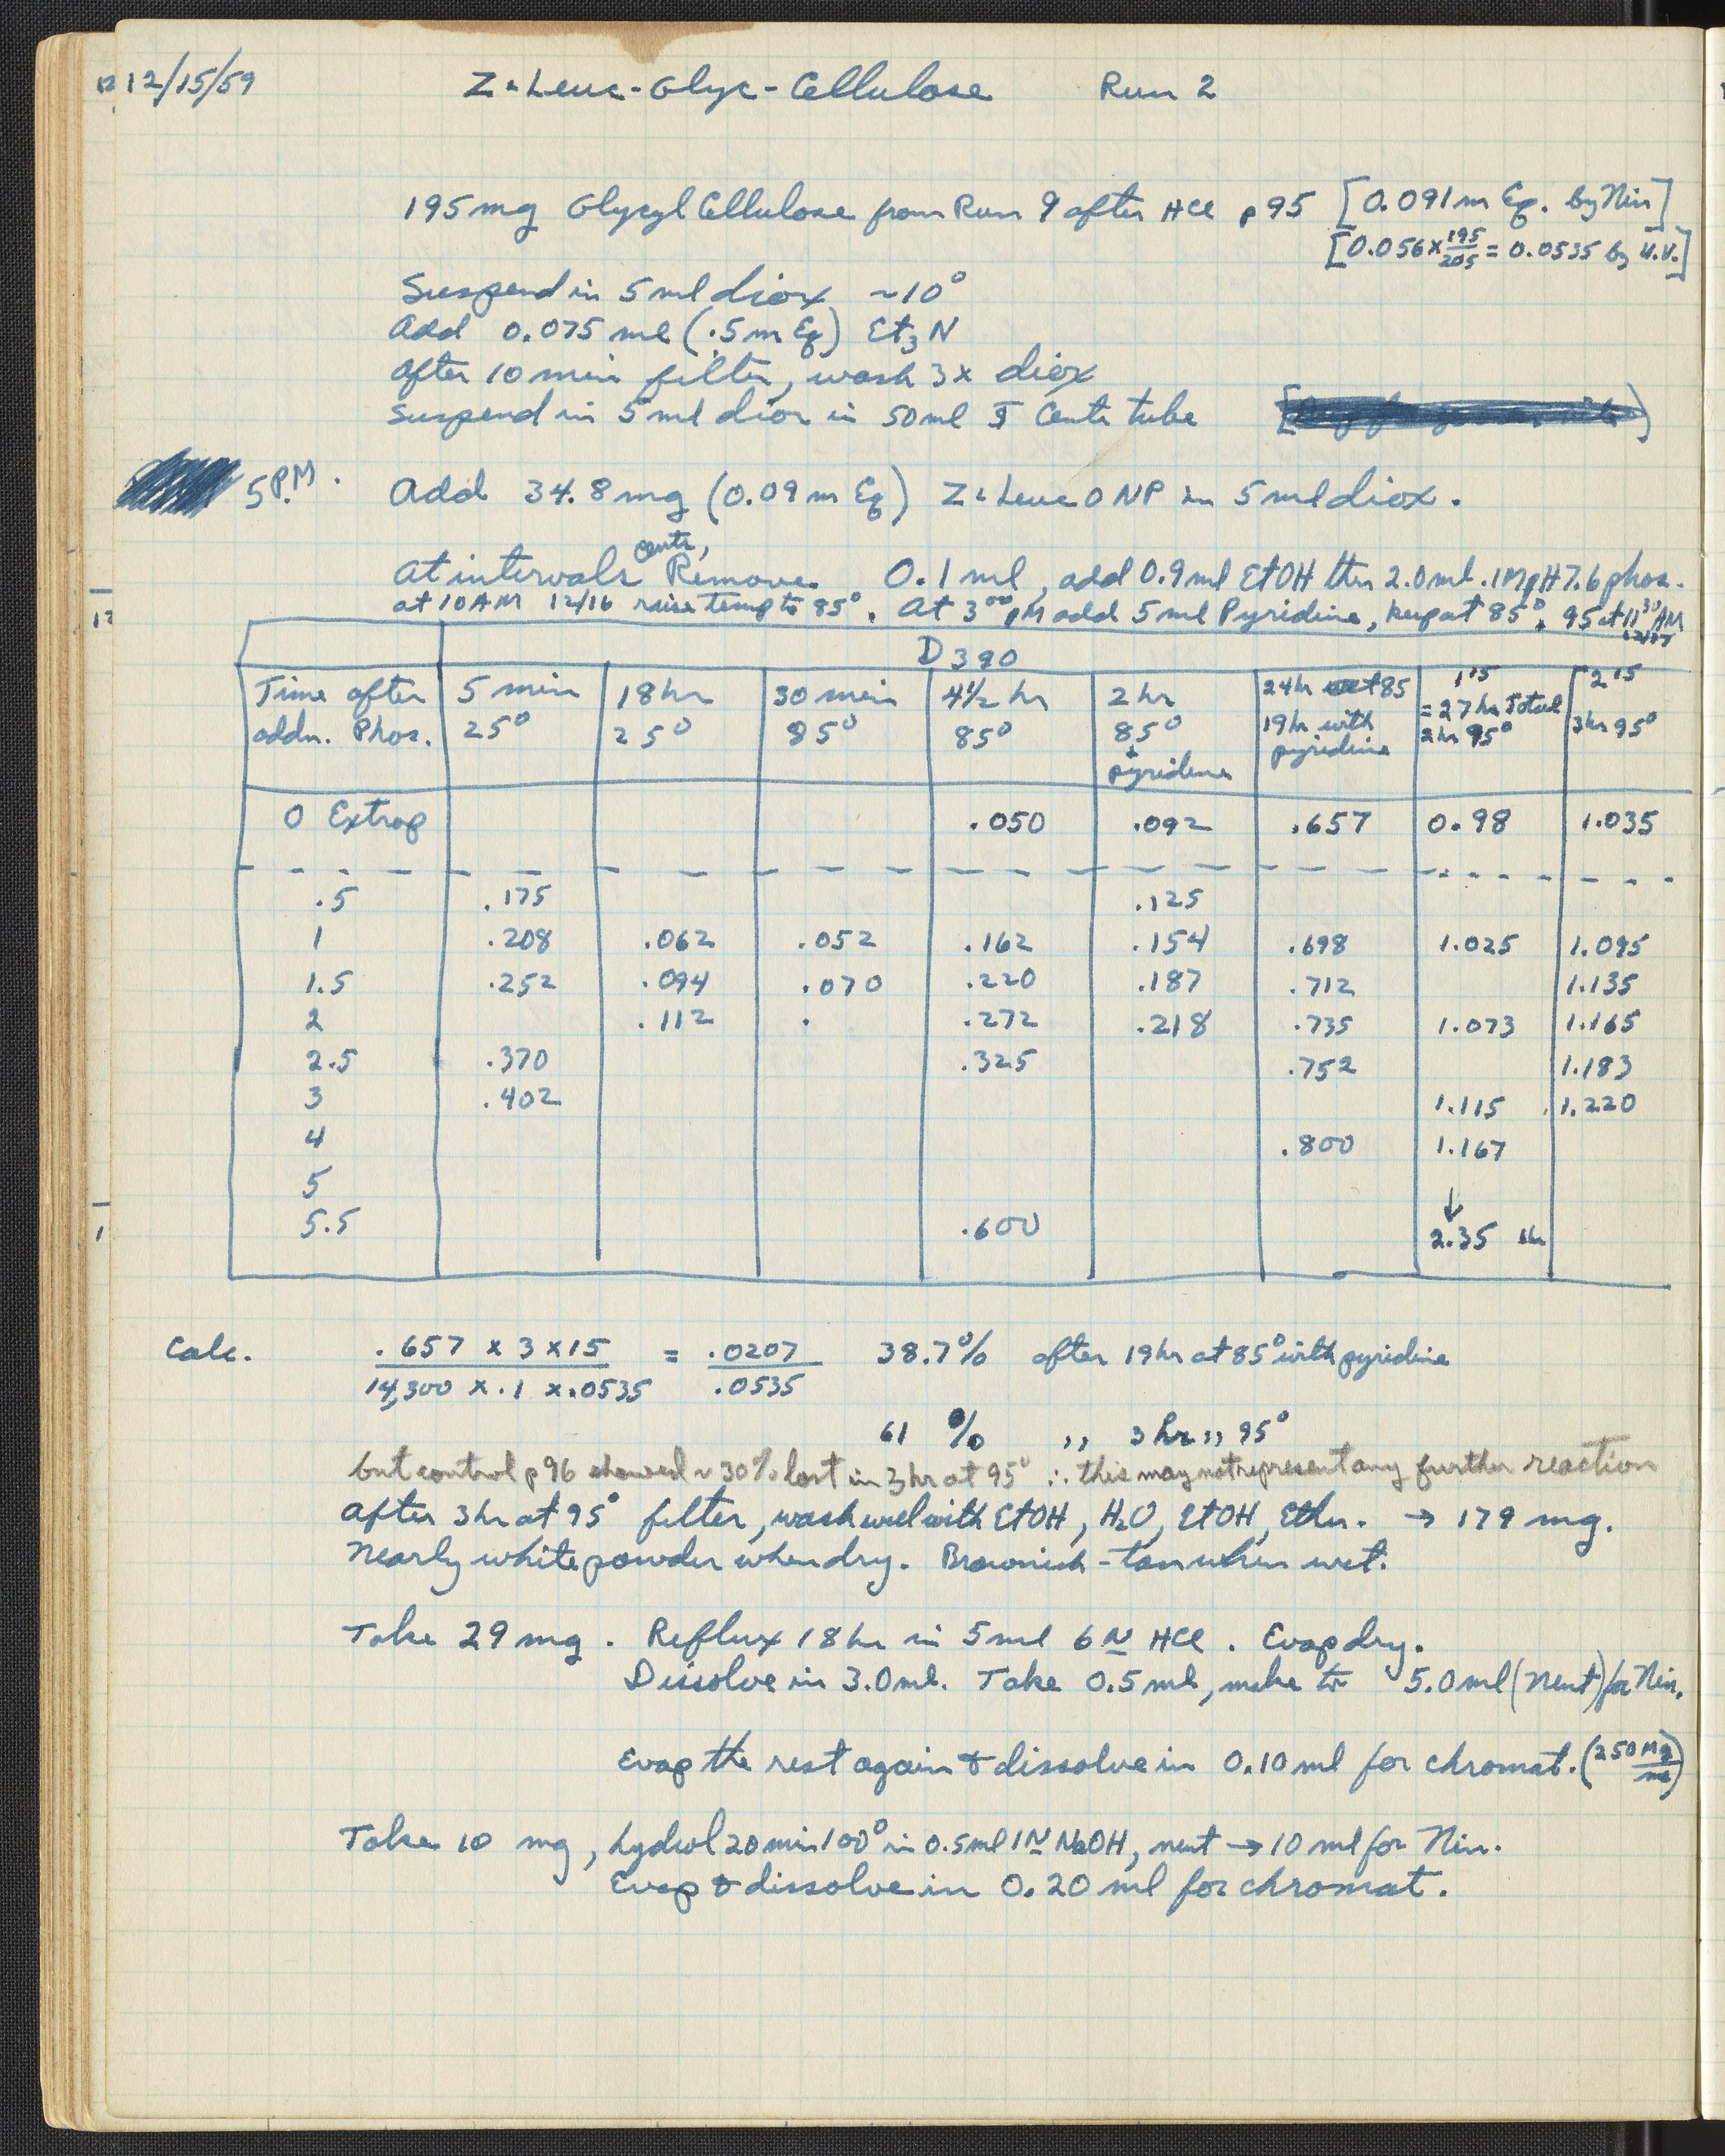 12/15/59 Z-Leuc-Glyc-Cellulose Run 2
195 mg Glycyl Cellulose from Run 9 after HCl p 95 [0.091 m Eq. by Nin]
[0.056 x 195/205 = 0.0535 by U.V.]
Suspend in 5 ml diox ~10°
Add 0.075 ml (.5 m Eq) Et3N
After 10 min filter, wash 3x diox
Suspend in 5 ml diox in 50 ml Centr tube
5 P.M. Add 34.8 mg (0.09 m Eq) Z-Leuc ONP in 5 ml diox.
centr,
At intervals Remove 0.1 ml, add 0.9 ml EtOH then 2.0 ml .1M pH 7.6 phos.
at 10 AM 12/16 raise temp to 85°. At 3 00 PM add 5 ml Pyridine, keep at 85°. 95 at 11 30 AM
12/17
D 390
Time after addn. Phos. 5 min 25° 18 hr 25° 30 min 85° 4 1/2 hr 85° 2 hr 85° + pyridine 24 hr at 85 19 hr with pyridine 1 15 = 27 hr Total 2 hr 95° 2 15 3 hr 95°
0 Extrap .050 .092 .657 0.98 1.035
.5 .175 .125
1 .208 .062 .052 .162 .154 .698 1.025 1.095
1.5 .252 .094 .070 .220 .187 .712 1.135
2 .112 . .272 .218 .735 1.073 1.165
2.5 .370 .325 .752 1.183
3 .402 1.115 1.220
4 .800 1.167
5 ↓
5.5 .600 2.35
Calc. .657 x 3 x 15 / 14,300 x .1 x .0535 = .0207 / .0535 38.7% after 19 hr at 85° with pyridine
61 % ,, 3 hr ,, 95°
but control p 96 showed ~ 30% lost in 3 hr at 95° ∴ this may not represent any further reaction
After 3 hr at 95° filter, wash well with EtOH, H2O, EtOH, Ether. → 179 mg.
Nearly white powder when dry. Brownish-tan when wet.
Take 29 mg. Reflux 18 hr in 5 ml 6 N HCl. Evap dry.
Dissolve in 3.0 ml. Take 0.5 ml, make to 5.0 ml (neut) for Nin.
Evap the rest again & dissolve in 0.10 ml for chromat. (250 Mg/ml)
Take 10 mg, hydrol 20 min 100° in 0.5 ml 1 N NaOH, neut → 10 ml for Nin.
Evap & dissolve in 0.20 ml for chromat.